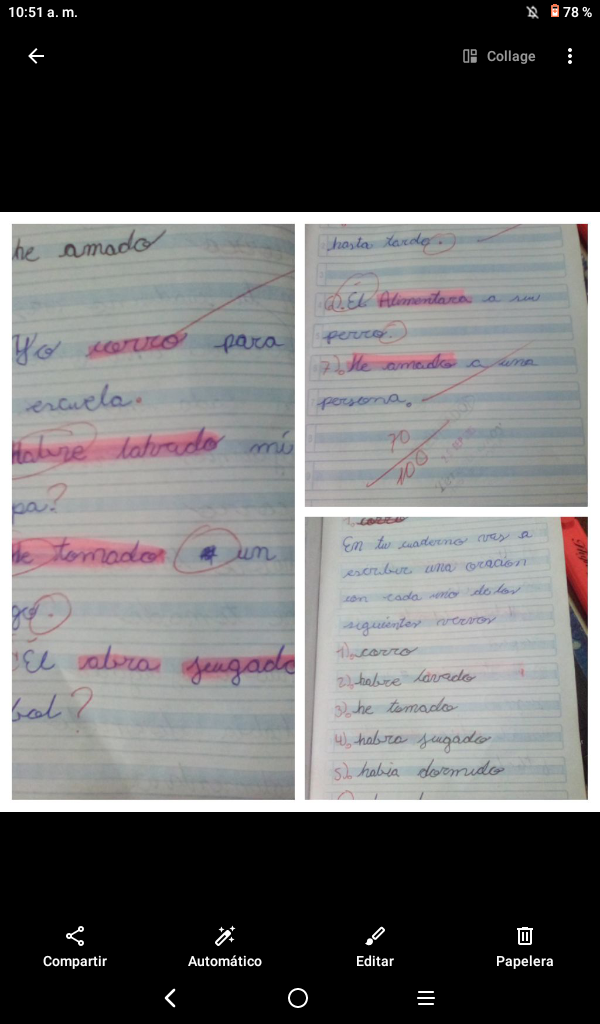 10:51 a. m.
78 %
Collage
he amado
Yo corro para
escuela.
Habre lahvado mi
pa?
He tomado un
go.
El abra jugado
bol?
hasta tarde.
6). El Alimentara a su
perro.
7). He amado a una
persona.
70
100
1. corro
En tu cuaderno vas a
escribir una oración
con cada uno de los
siguientes vervos
1). corro
2). habre lavado
3). he tomado
4). habra jugado
5). habia dormido
Compartir
Automático
Editar
Papelera